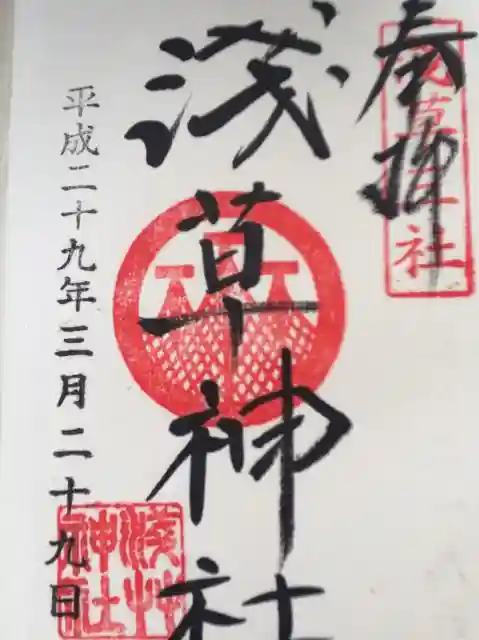 奉拝
浅草神社
浅草神社
平成二十九年三月二十九日
浅草神社